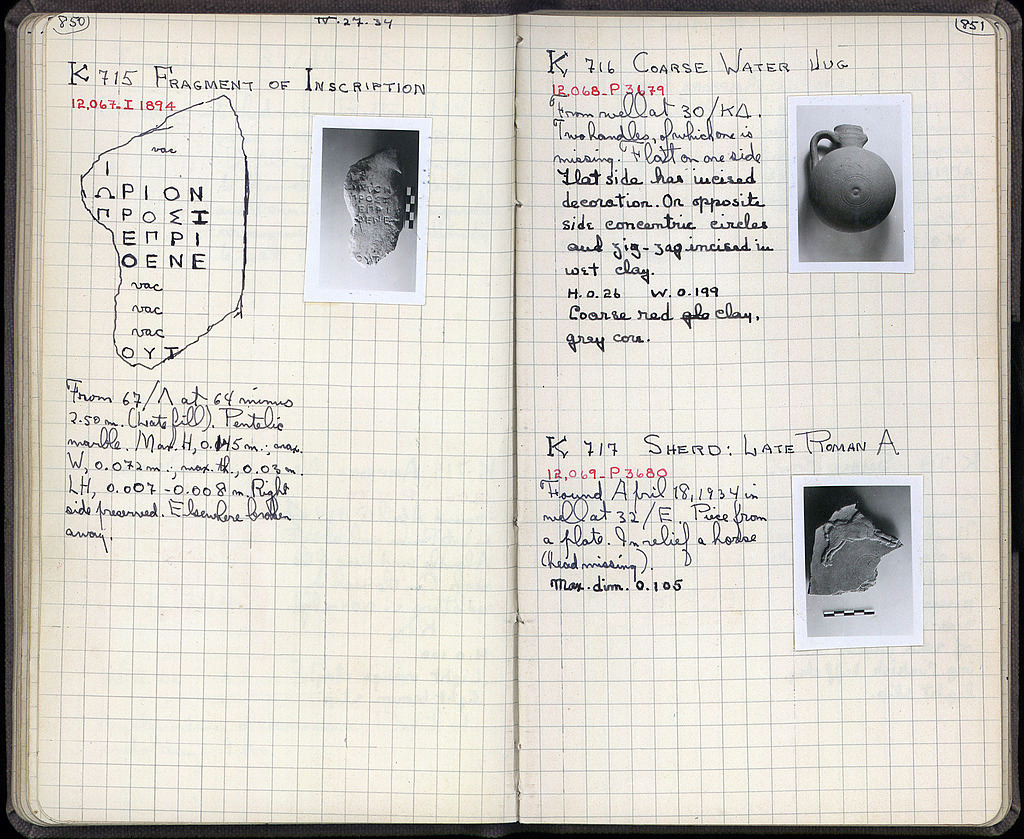 850
IV-27-34
K 715 FRAGMENT OF INSCRIPTION
12,067-I 1894
vac
Ι
ΩΡΙΟΝ
ΠΡΟΣΙ
ΕΠΡΙ
ΟΕΝΕ
vac
vac
vac
ΟΥΤ
From 67/Λ at 64 minus
2.50 m. (Late fill). Pentelic
marble. Max. H, 0.145 m.; max.
W, 0.072 m.; max. th., 0.03 m.
LH, 0.007-0.008 m. Right
side preserved. Elsewhere broken
away.
851
K 716 COARSE WATER JUG
12,068-P 3679
From well at 30/ΚΔ.
Two handles, of which one is
missing. Flat on one side
Flat side has incised
decoration. On opposite
side concentric circles
and zig-zag incised in
wet clay.
H. 0.26 W. 0.199
Coarse red clay,
grey core.
K 717 SHERD: LATE ROMAN A
12,069-P 3680
Found April 18, 1934 in
well at 32/Ε. Piece from
a plate. In relief a horse
(head missing).
Max. dim. 0.105